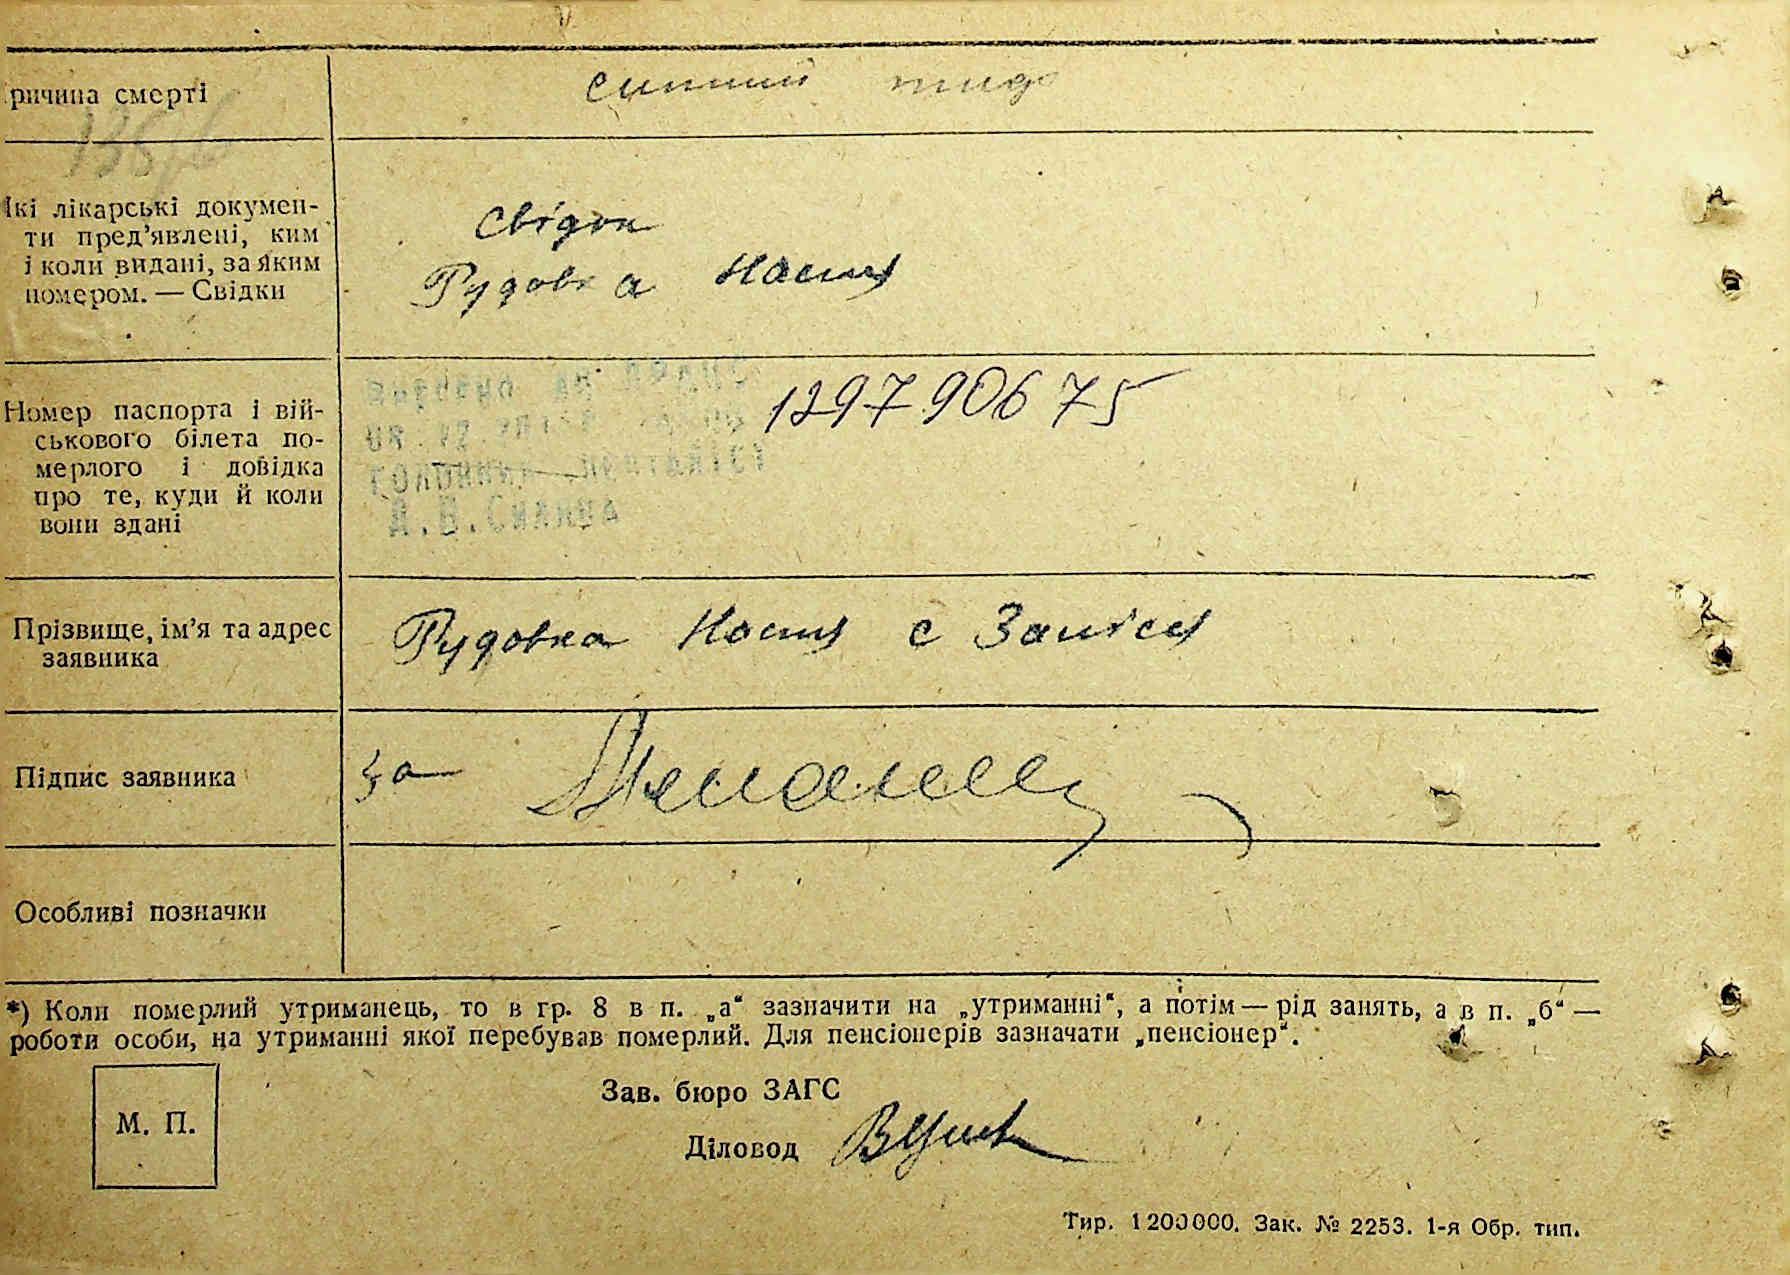 ричина смерті
сипний тиф
135/6
Які лікарські докумен-
ти пред’явлені, ким
і коли видані, за яким
номером. — Свідки
Свідок
Рудовка Настя
Номер паспорта і вій-
ськового білета по-
мерлого і довідка
про те, куди й коли
вони здані
129790675
А.В.
Прізвище, ім’я та адрес
заявника
Рудовка Настя с
Підпис заявника
за
Особливі позначки
*) Коли померлий утриманець, то в гр. 8 в п. „а“ зазначити на „утриманні“, а потім — рід занять, а в п. „б“ —
роботи особи, на утриманні якої перебував померлий. Для пенсіонерів зазначати „пенсіонер“.
М. П.
Зав. бюро ЗАГС
Діловод
Тир. 1200000. Зак. № 2253. 1-я Обр. тип.